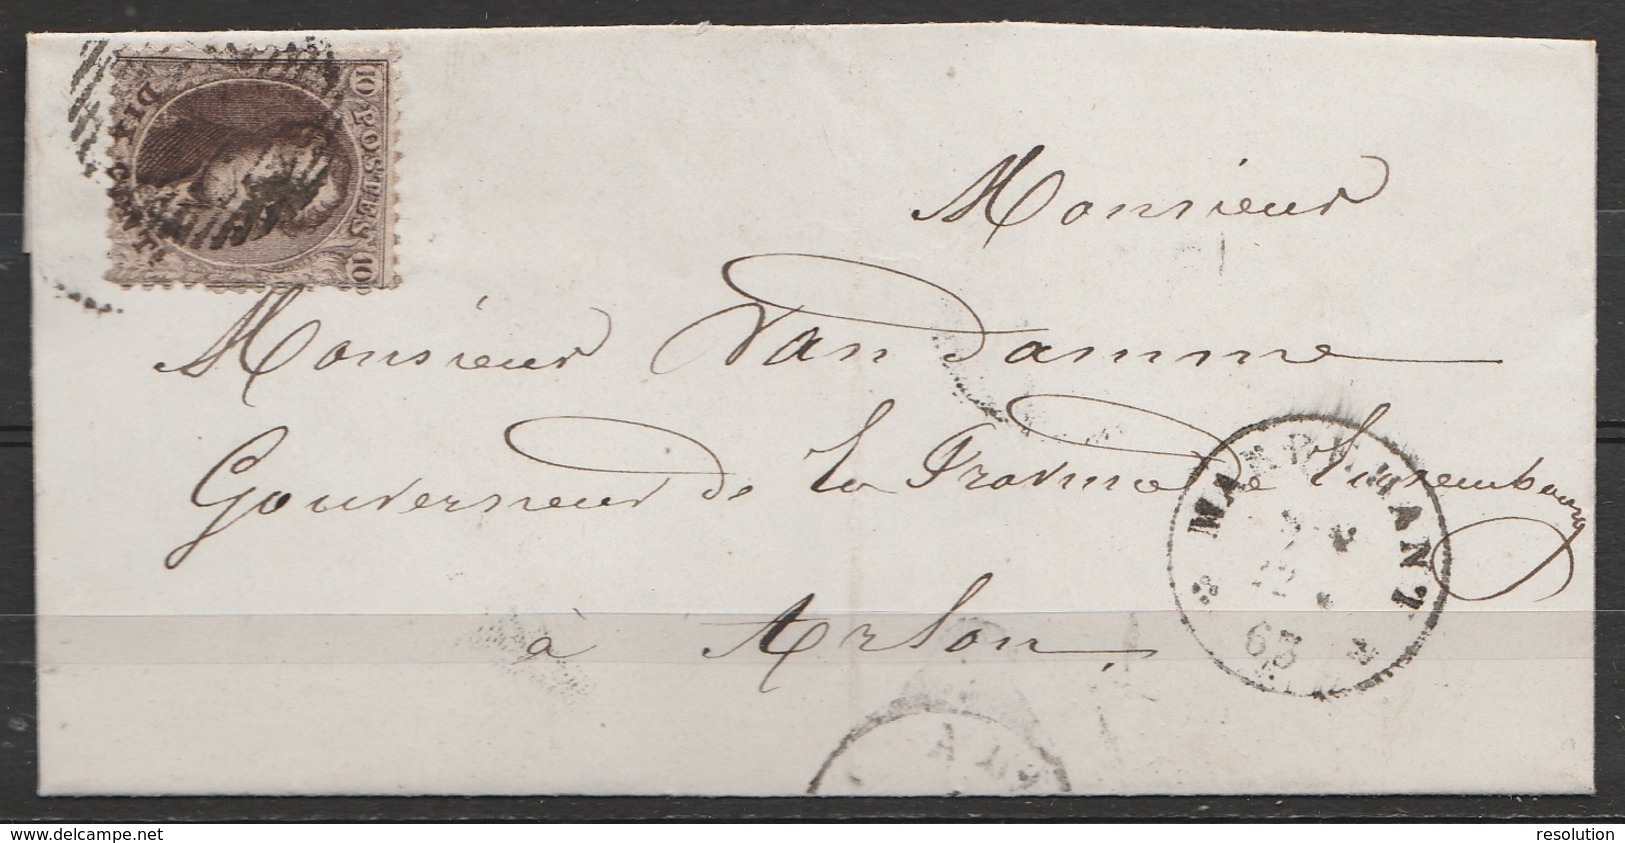 10 POSTES 10
DIX CENTS
Monsieur
Monsieur Van Damme
Gouverneur de la Province de Luxembourg
à Arlon.
63
www.delcampe.net
resolution